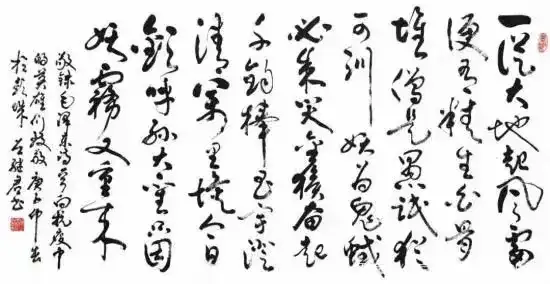 一從大地起风雷
便有精生白骨
堆僧是愚氓犹
可训妖为鬼蜮
必成灾金猴奋起
千钧棒玉宇澄
清万里埃今日
欢呼孙大圣只因
妖雾又重来
敬录毛泽东诗向抗疫中
的英雄们致敬庚子中春
书